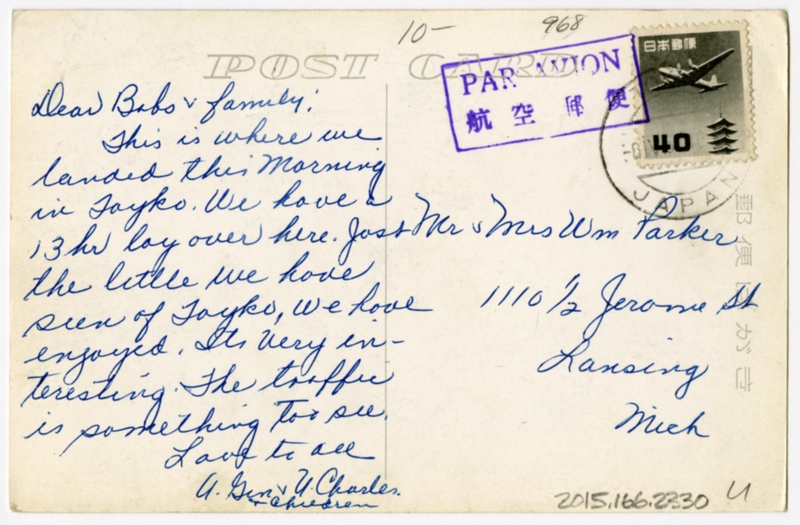 10-
968
POST CARD
PAR AVION
航空郵便
日本郵便
40
JAPAN
Dear Babs & family:
This is where we
landed this Morning
in Toyko. We have a
13 hr lay over here. Just
the little we have
seen of Toyko, we have
enjoyed. Its very in-
teresting. The traffic
is something too see.
Love to all
A. Gen & U. Charles.
+ children
Mr & Mrs Wm Parker
1110 1/2 Jerome St
Lansing
Mich
郵便はがき
2015.166.2330
U